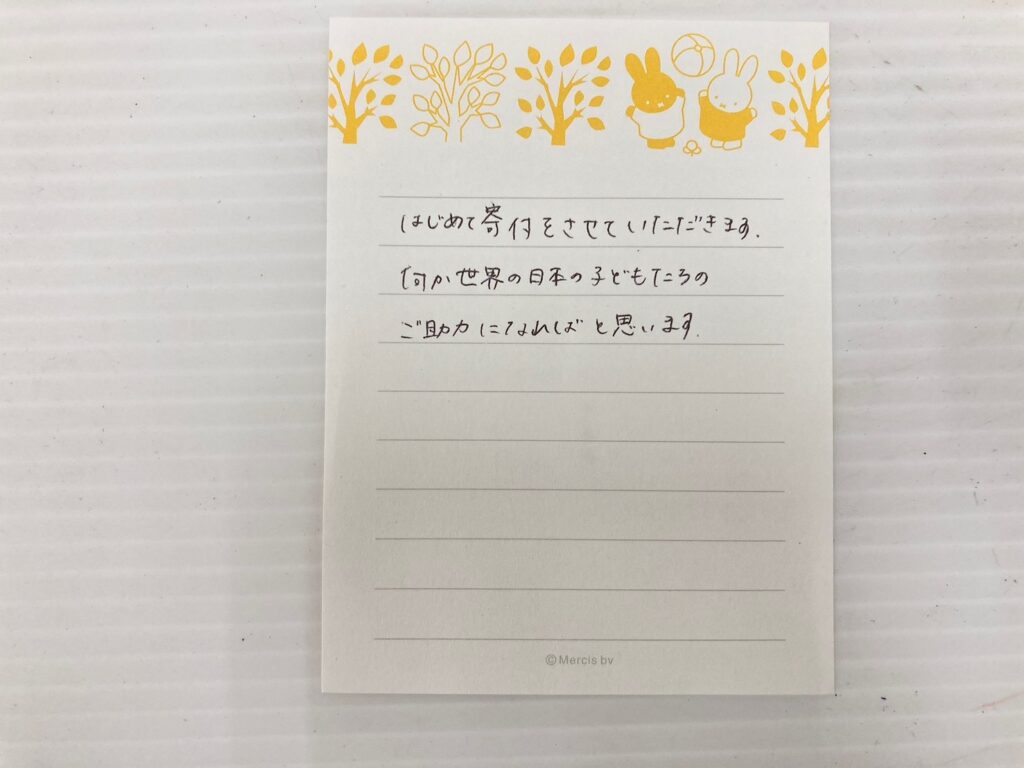 はじめて寄付をさせていただきます.
何か世界の日本の子どもたちの
ご助力になればと思います.
©Mercis bv